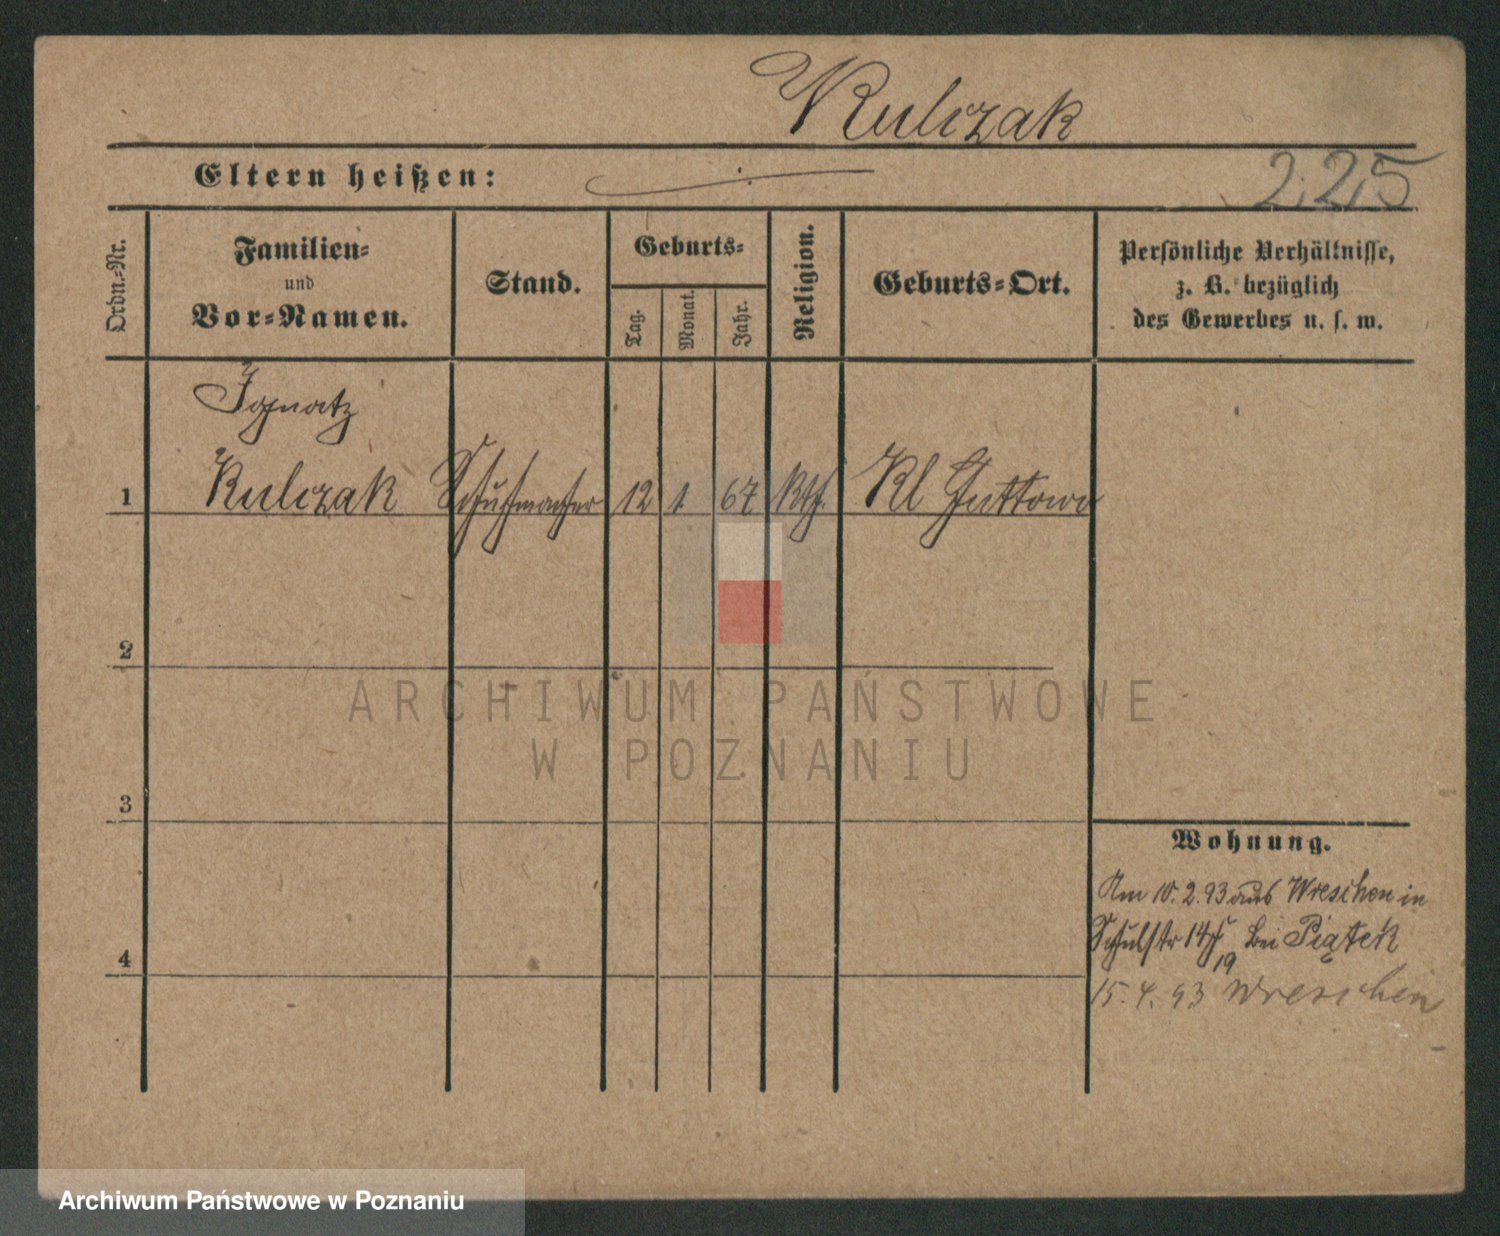 Kulczak
Eltern heißen:
225
Ordn.-Nr.
Familien-
und
Vor-Namen.
Stand.
Geburts-
Tag.
Monat.
Jahr.
Religion.
Geburts-Ort.
Persönliche Verhältnisse,
z. B. bezüglich
des Gewerbes u. s. w.
Ignatz
1 Kulczak Schuhmacher 12 1. 67 kth. Kl Guttowo
2
3
4
Wohnung.
Am 10.2.93 aus Wreschen in
Schulstr 14 bei Piątek
19
15.4.93 Wreschen
ARCHIWUM PAŃSTWOWE
W POZNANIU
Archiwum Państwowe w Poznaniu